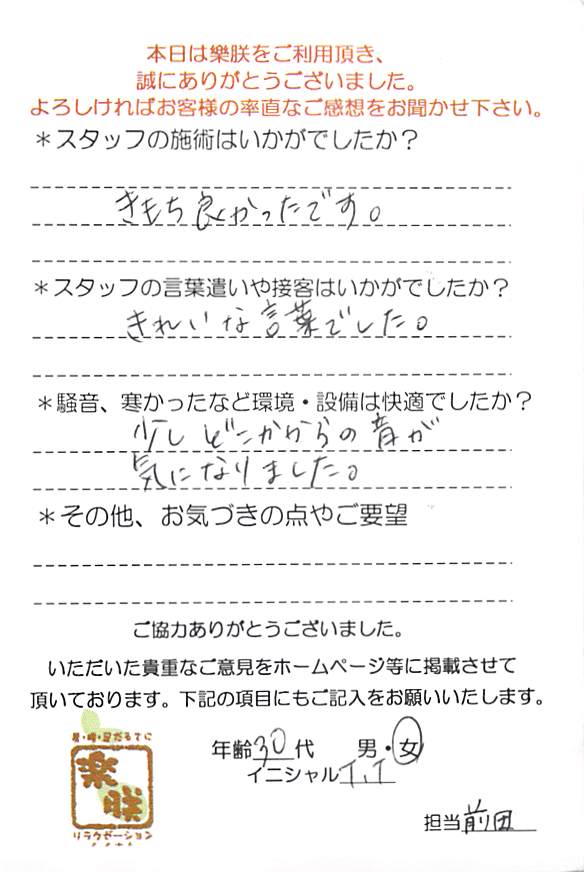 本日は樂朕をご利用頂き、
誠にありがとうございました。
よろしければお客様の率直なご感想をお聞かせ下さい。
＊スタッフの施術はいかがでしたか？
きもち良かったです。
＊スタッフの言葉遣いや接客はいかがでしたか？
きれいな言葉でした。
＊騒音、寒かったなど環境・設備は快適でしたか？
少しどこかからの音が
気になりました。
＊その他、お気づきの点やご要望
ご協力ありがとうございました。
いただいた貴重なご意見をホームページ等に掲載させて
頂いております。下記の項目にもご記入をお願いいたします。
年齢30代 男・女
イニシャル I.I
担当 前田
樂朕
リラクゼーション